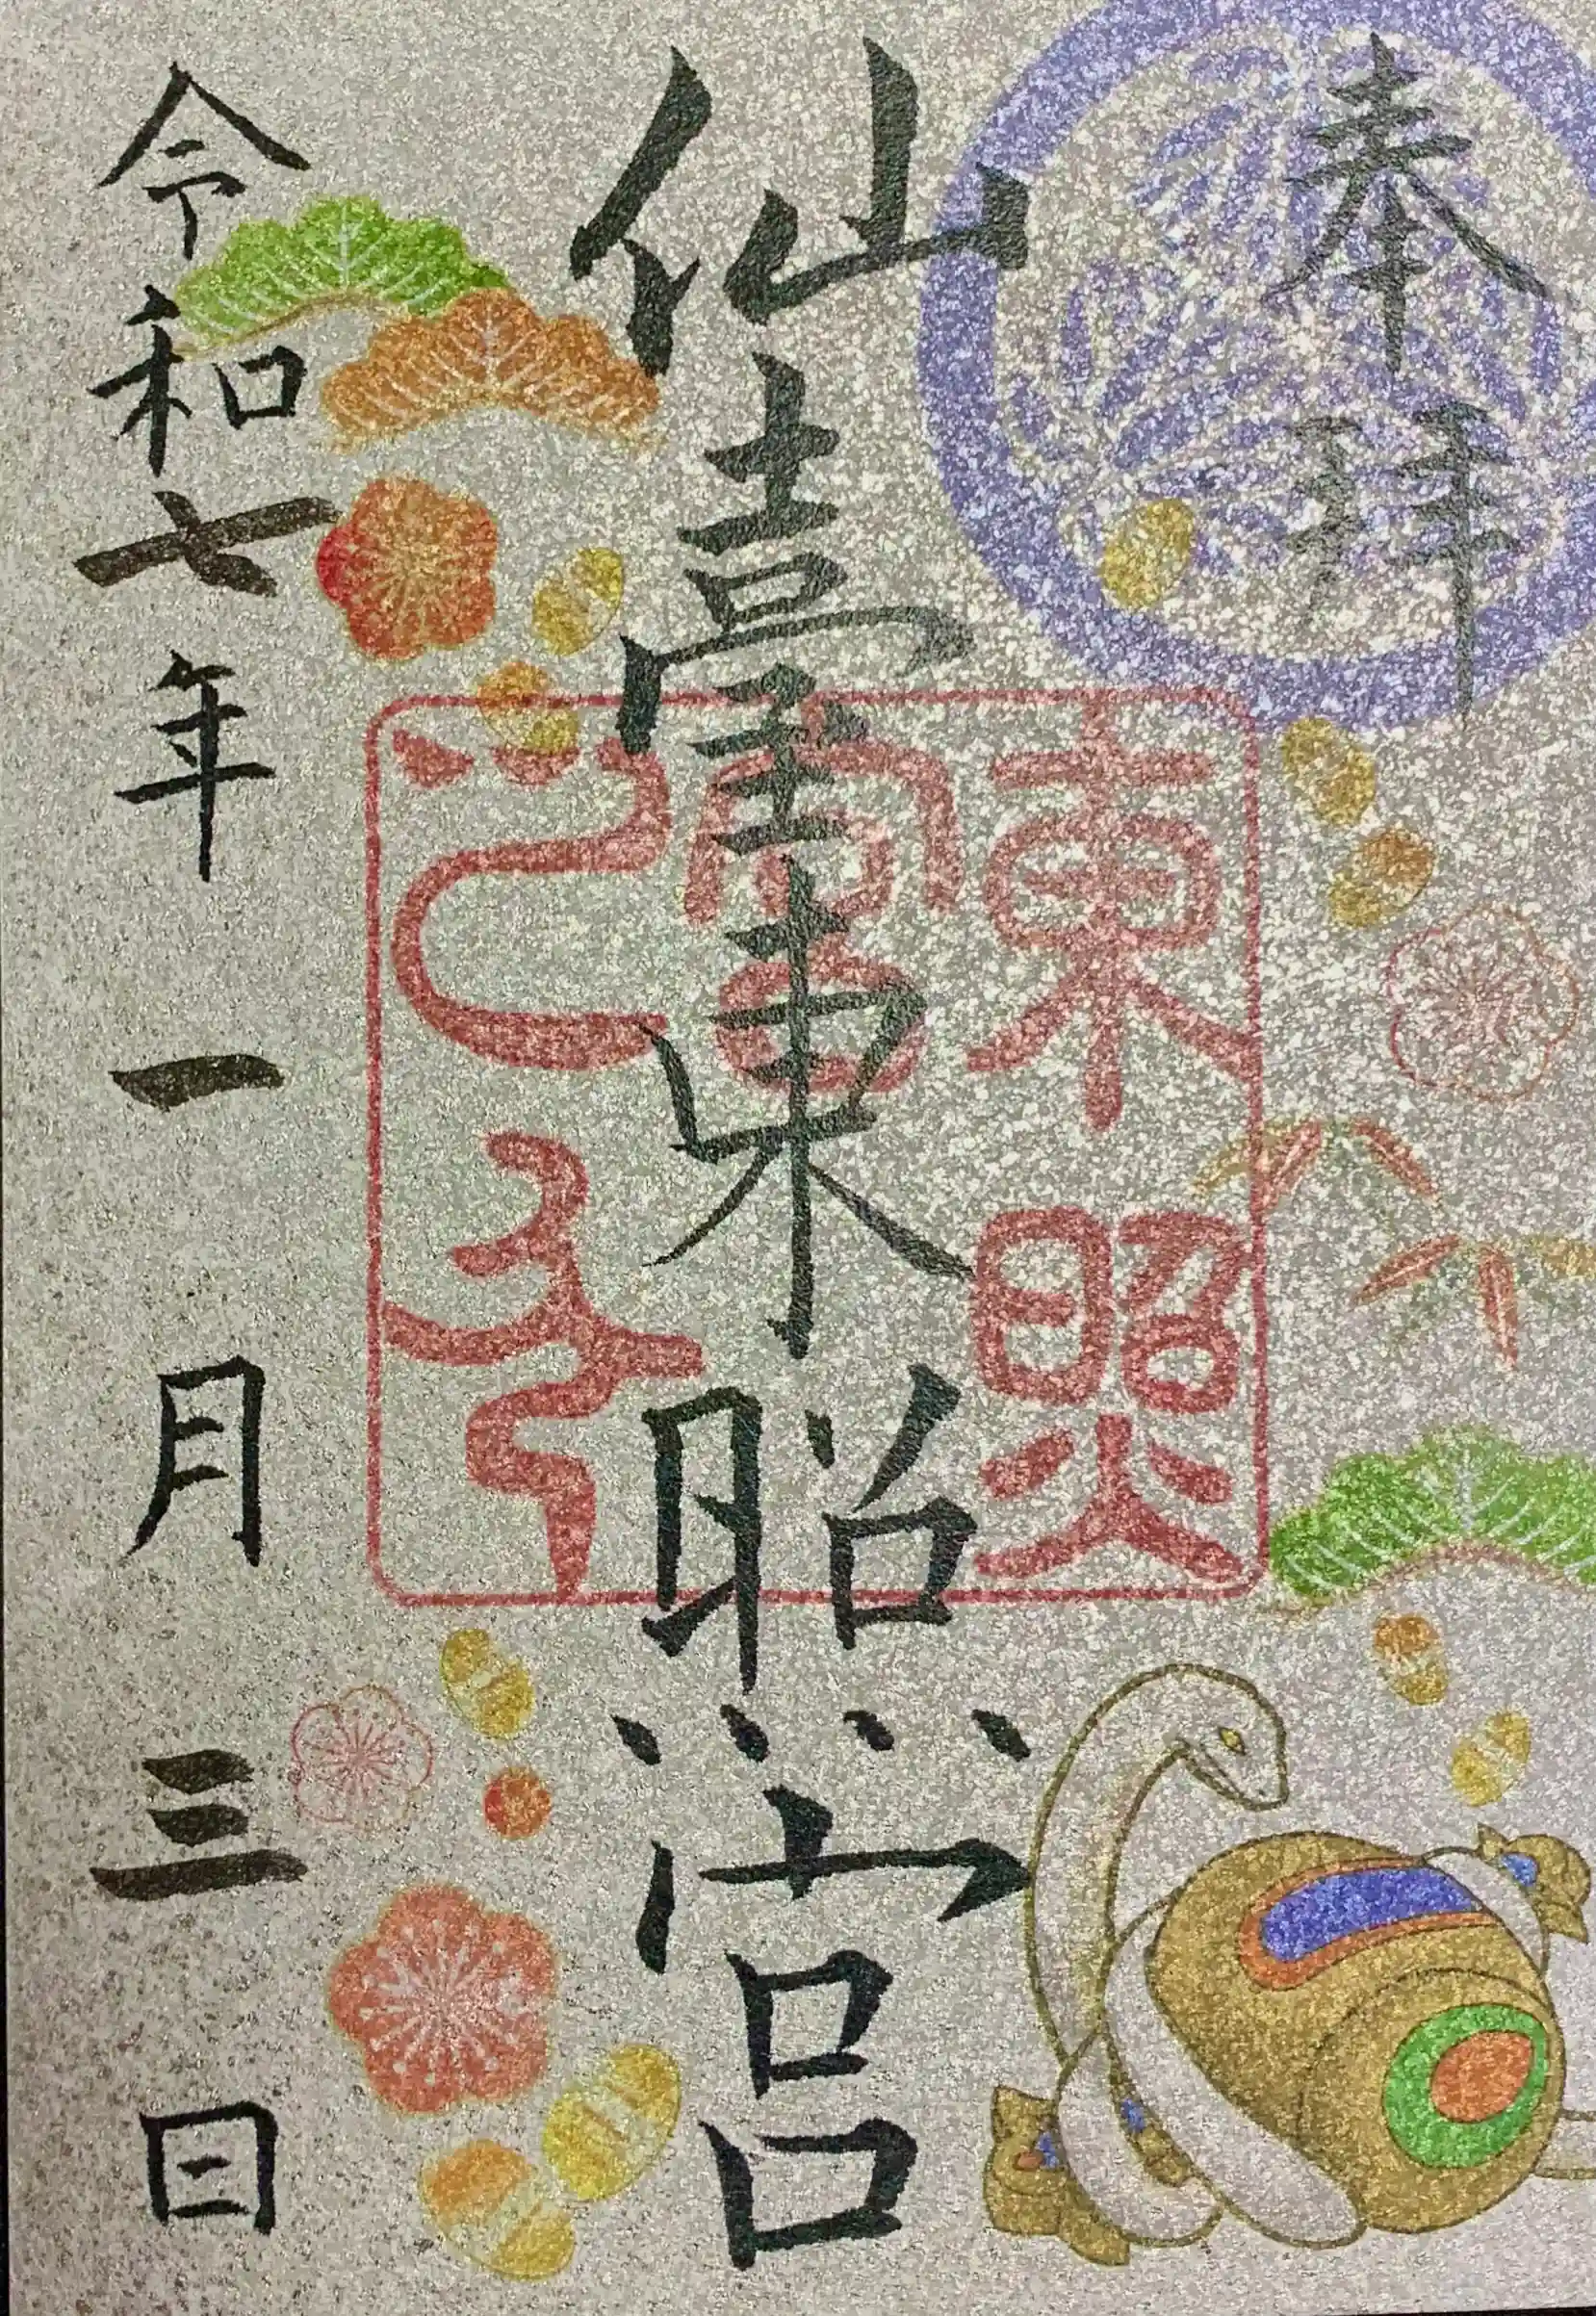 奉拝
仙臺東照宮
東照
宮
之印
令和七年一月三日